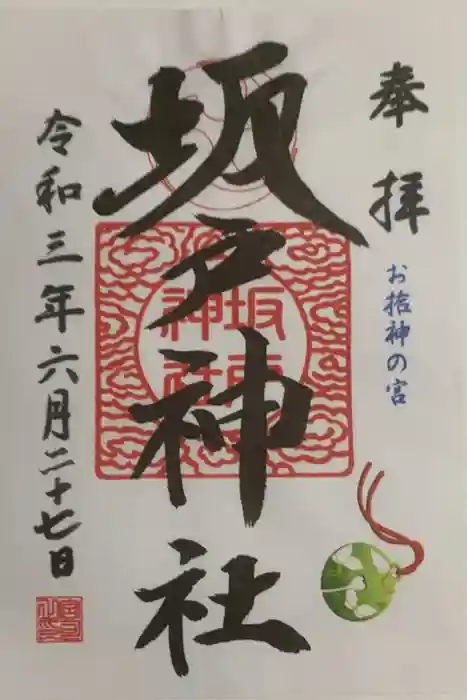 奉拝
お捨神の宮
坂戸神社
坂戸
神社
令和三年六月二十七日